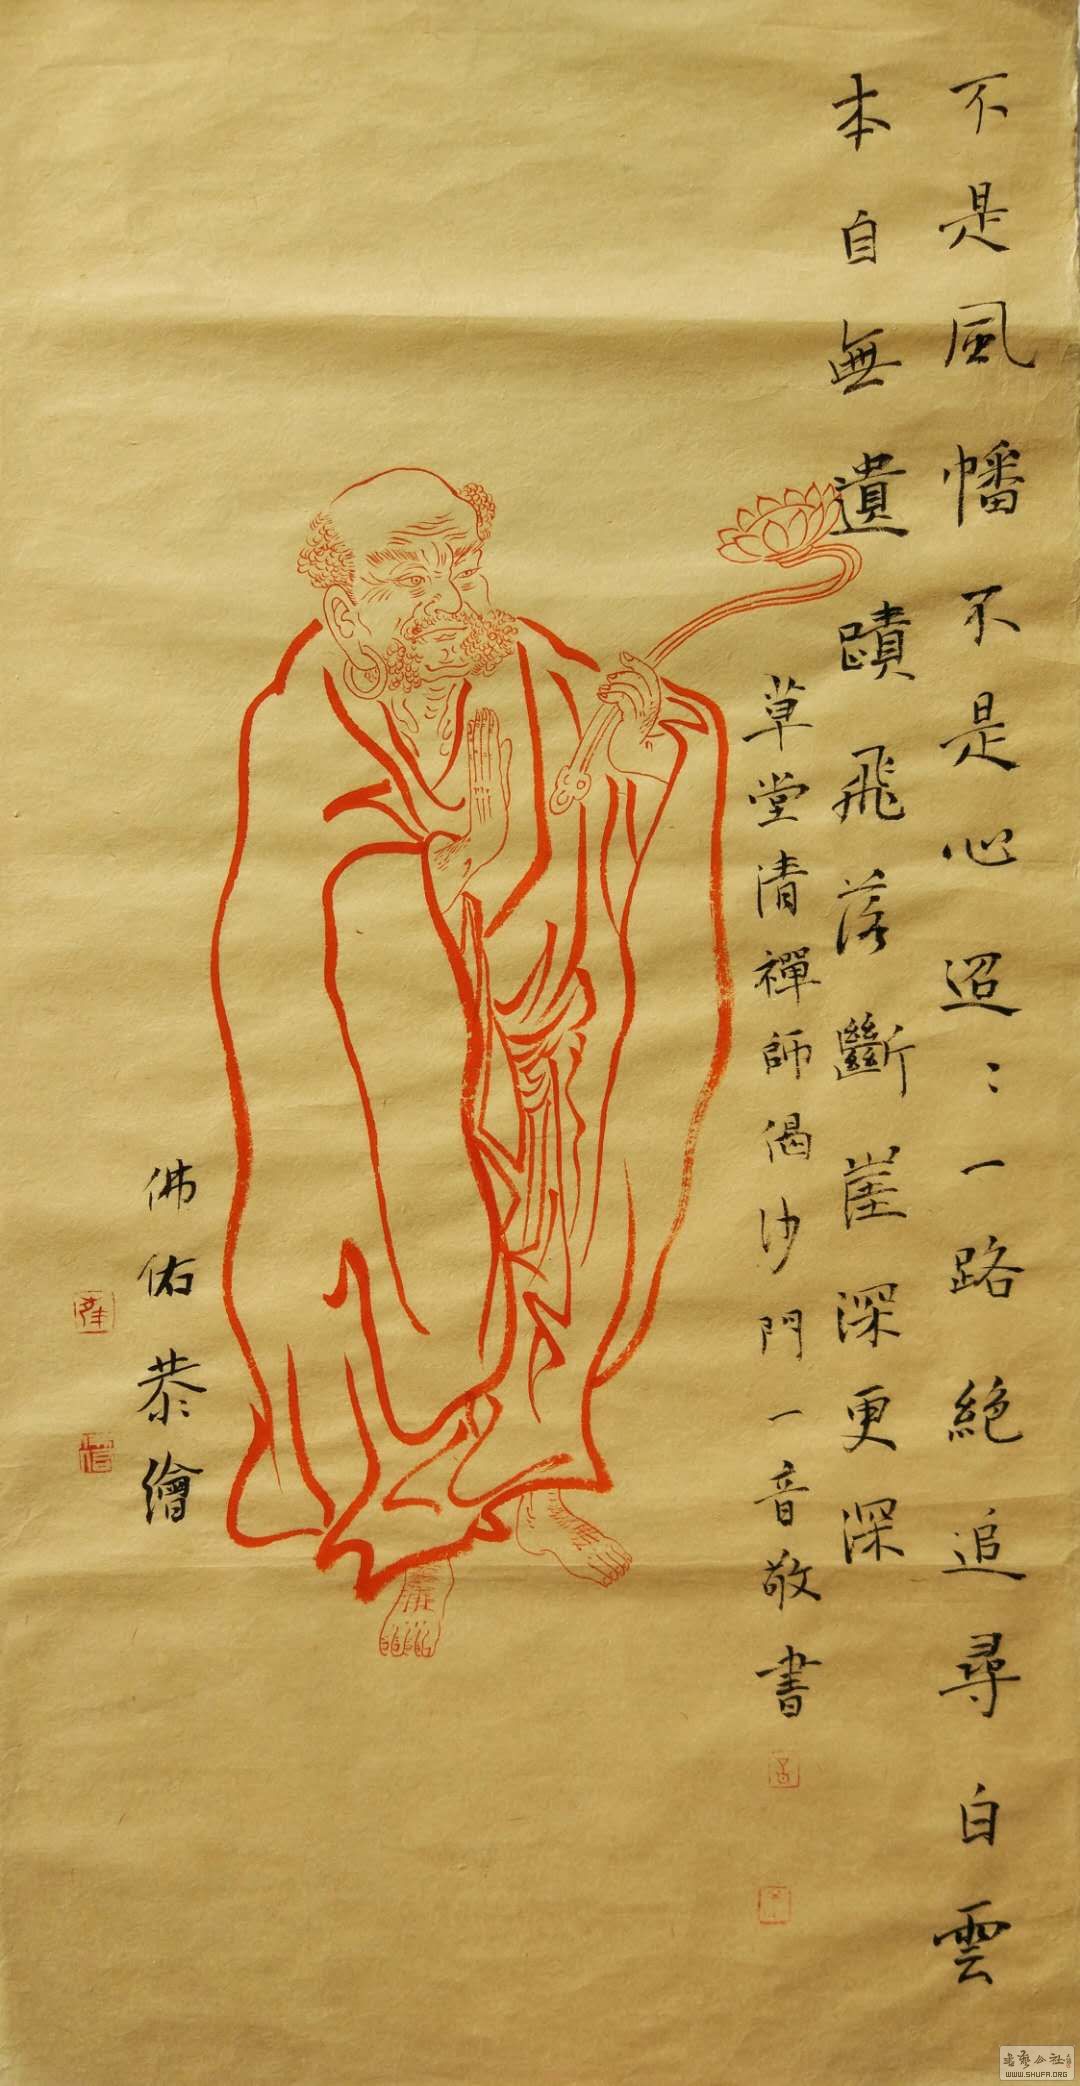 不是風幡不是心迢〻一路絶追尋白雲
本自無遺蹟飛落斷崖深更深
草堂清禪師偈沙門一音敬書
佛佑恭繪
書藝公社
WWW.SHUFA.ORG